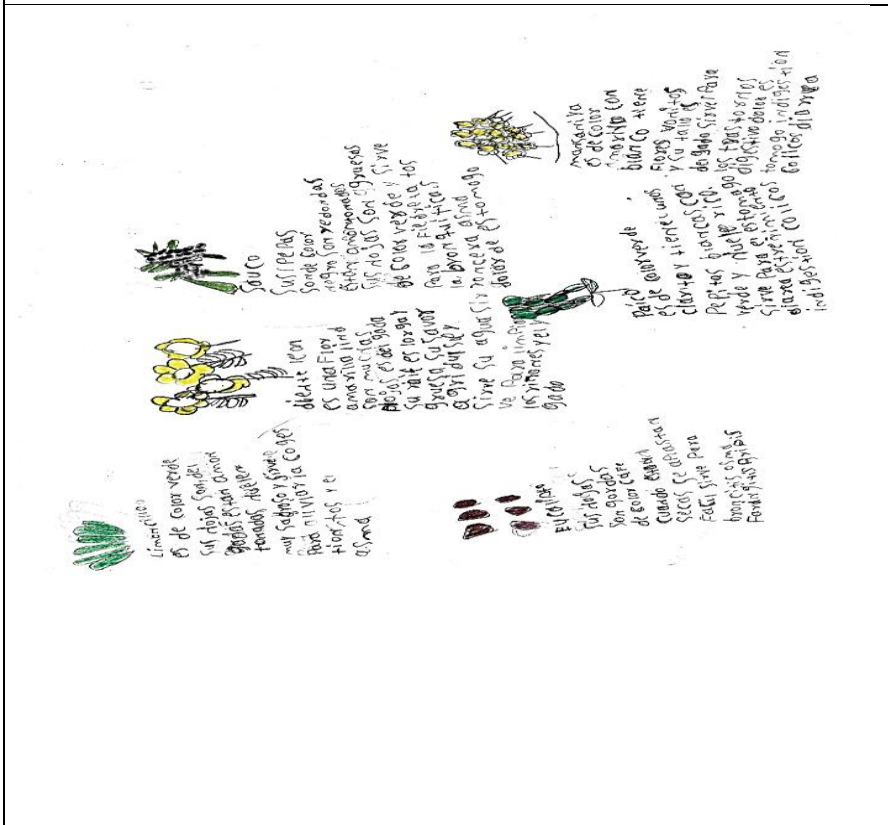 Limoncillo
es de color verde
sus hojas son del
gadas están amon
tonadas huelen
muy sabroso y sirve
Para aliviar la co
y el
asma
diente leon
es una Flor
amarilla
con muchas
hojas es delgada
su raiz es larga y
gruesa su savor
a gridulse y
sirve su agua sir
ve Para limpiar
los riñones y el i
gado
Sauco
sus pepas
son de color
negra son redondas
están amontonadas
sus hojas son gruesas
de color verde y sirve
Para la fiebre la tos
la bronquitica s
asma
dolor de estomago
Eucalipto
sus hojas
son gordas
de color cafe
cuando están
secas se aplastan
Facil sirve Para
asma
Paico
es de color verde
clarito y tiene unas
Pepitas blancas con
verde y huele rico.
sirve Para el estomago
diarea
indigestion
manzanilla
es de color
amarillo con
blanco tiene
Flores
y su tallo es
delgado sirve Para
los trastornos
digestivo dolor es
tomago indigestion
colicos diarrea